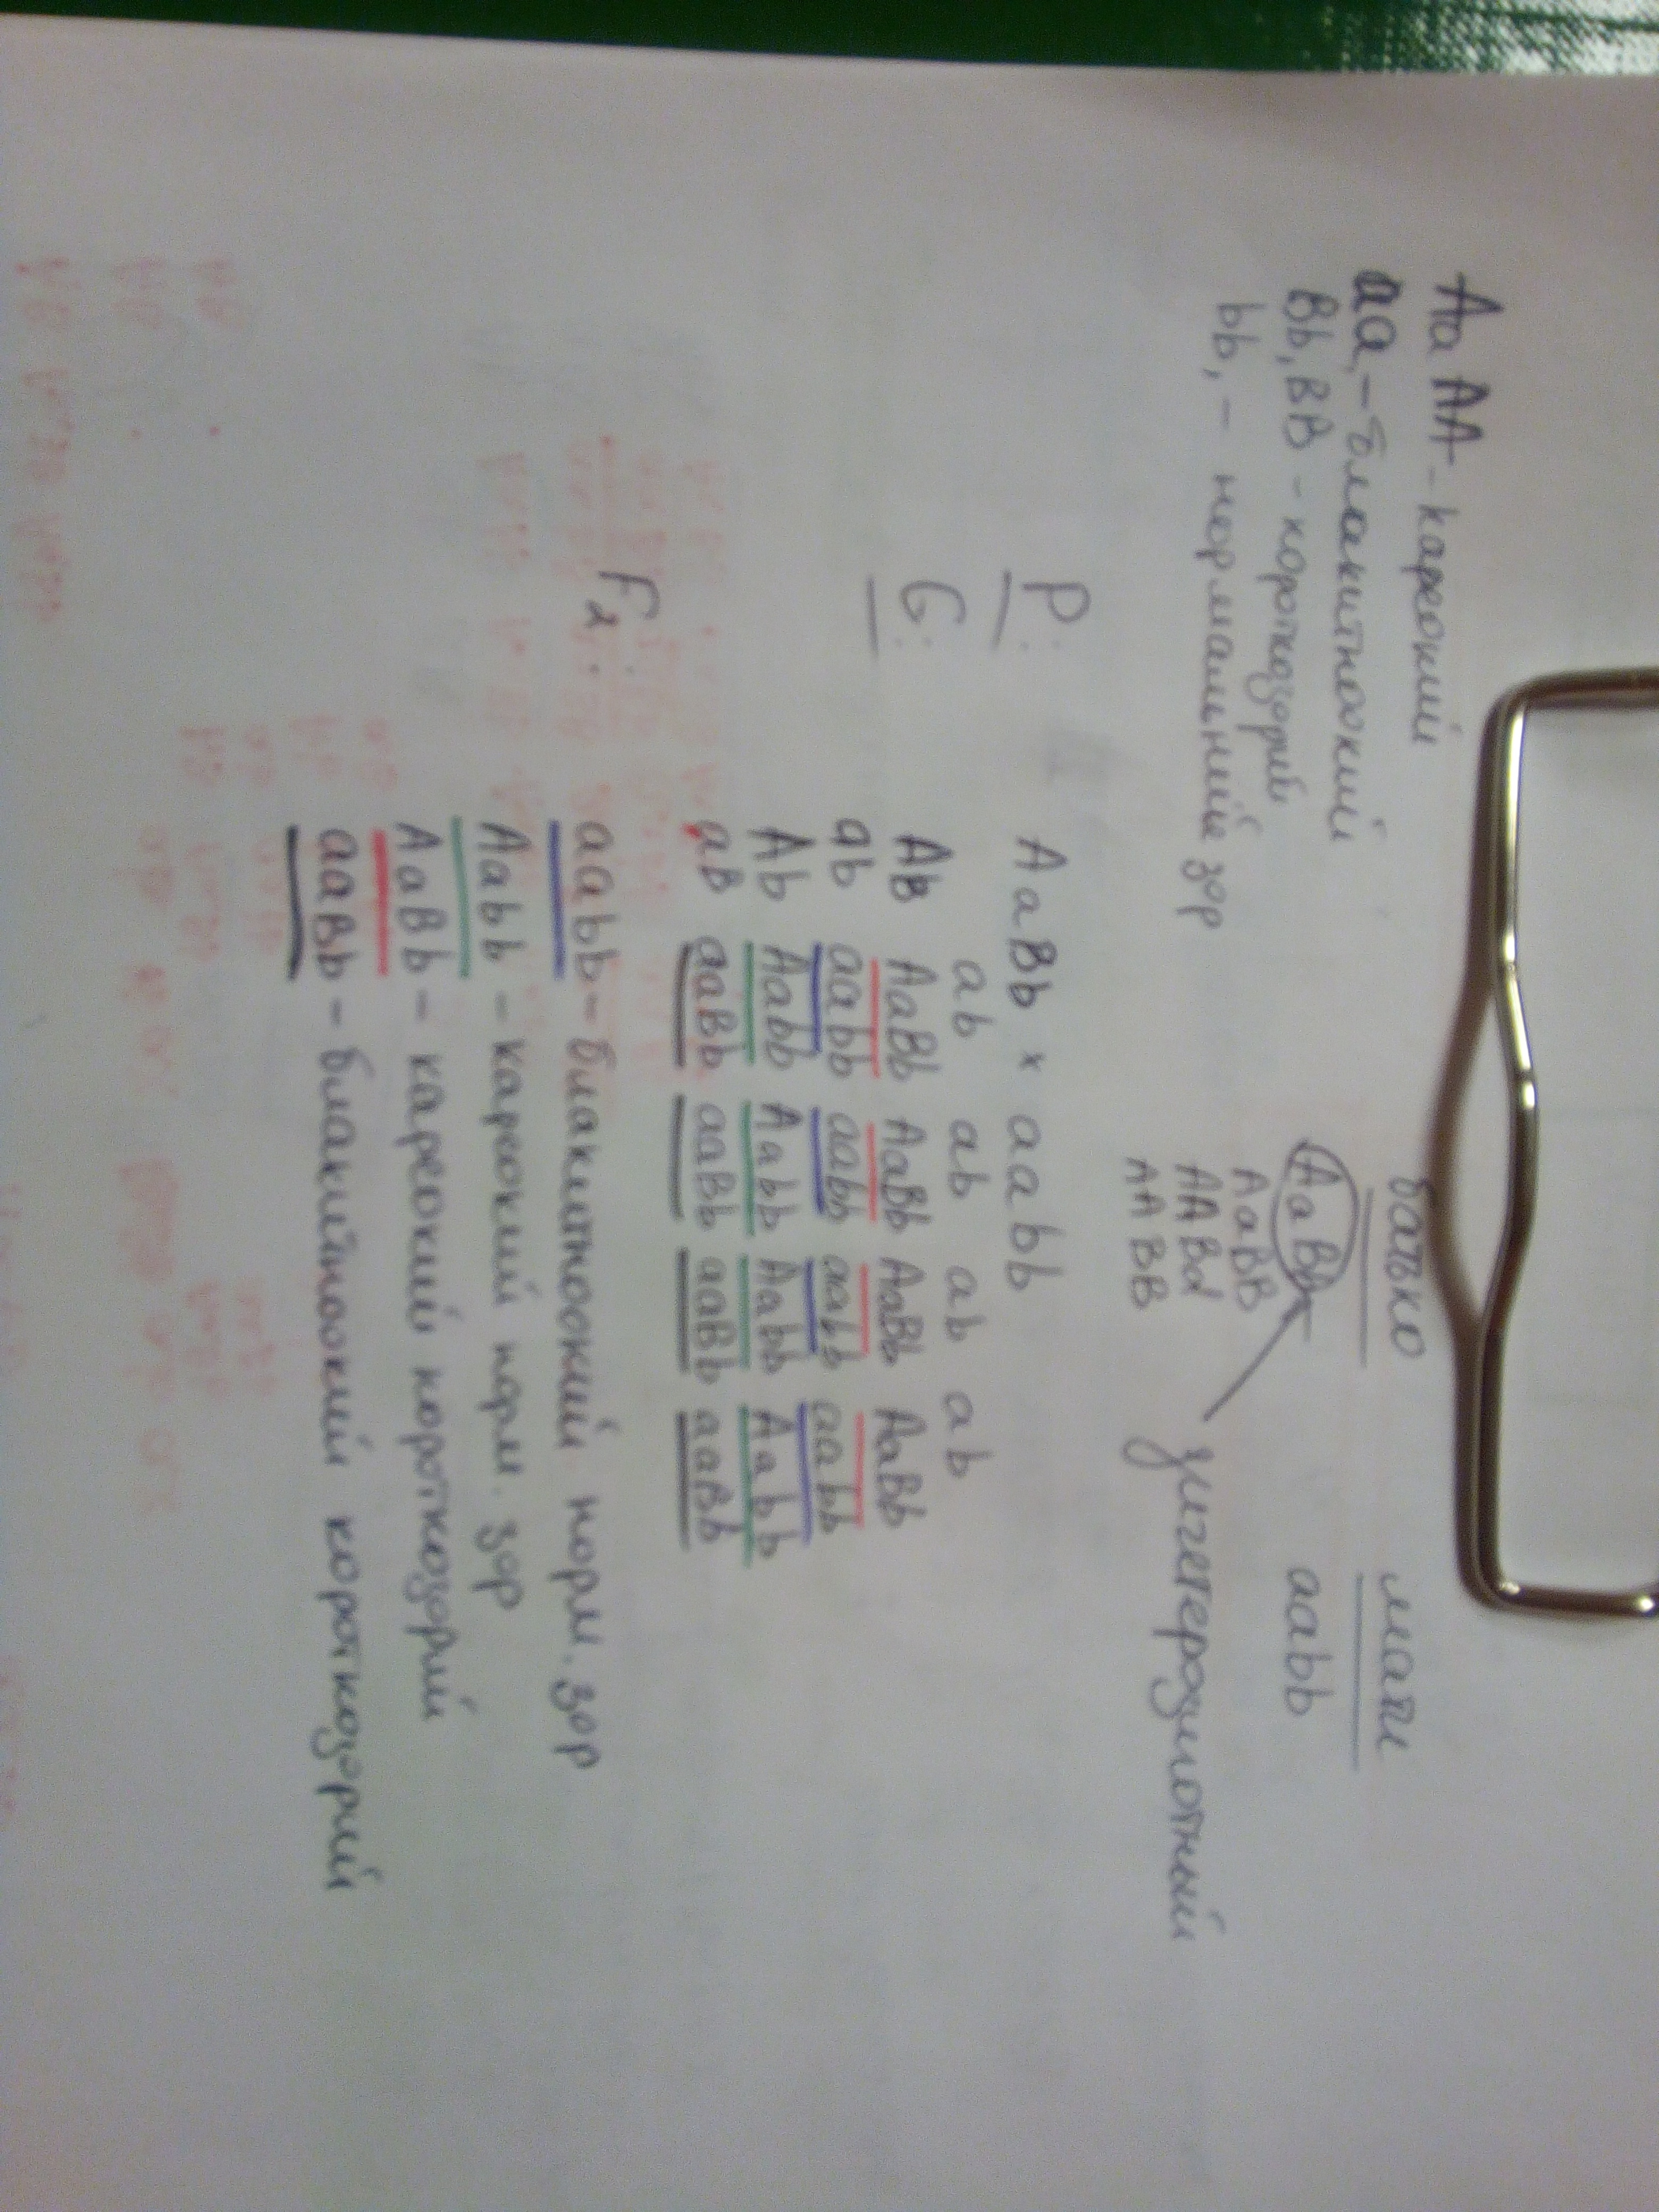 Aa AA - кареокий
aa, - блакитноокий
Bb, BB - короткозорий
bb, - нормальний зор
батько
AaBb
AaBB
AABd
AABB
мати
aabb
дигетерозиготный
P: AaBb x aabb
G: ab ab ab ab
AB AaBb AaBb AaBb AaBb
ab aabb aabb aabb aabb
Ab Aabb Aabb Aabb Aabb
aB aaBb aaBb aaBb aaBb
F2: aabb - блакитноокий норм. зор
Aabb - кареокий норм. зор
AaBb - кареокий короткозорий
aaBb - блакитноокий короткозорий